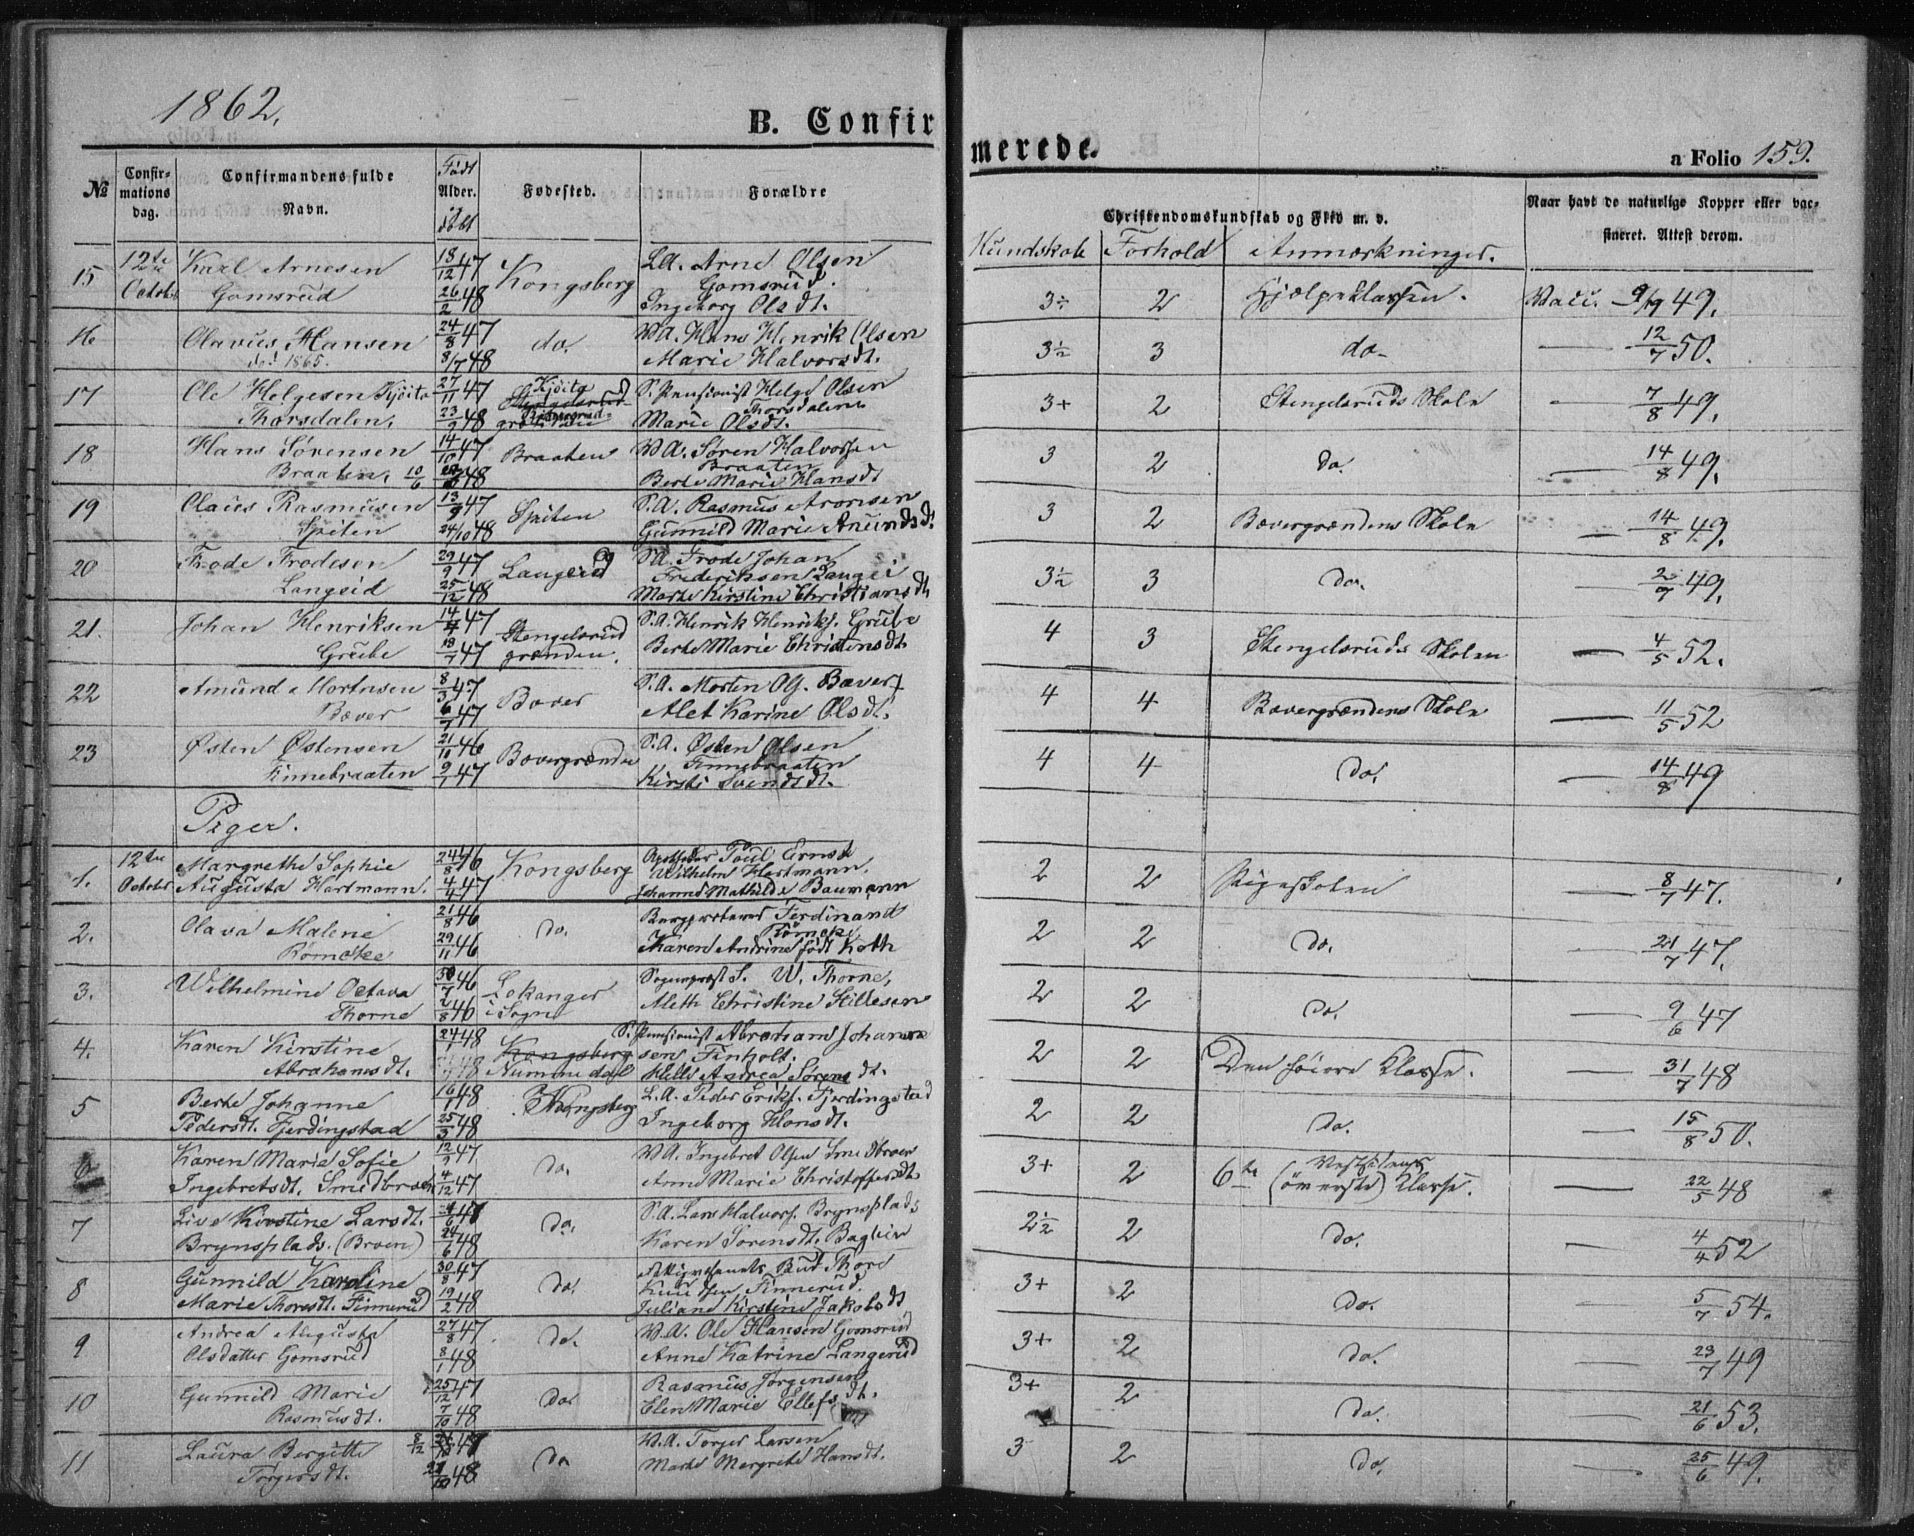 1862.
B. Confirmerede.
a Folio 159.
№ Confirmations dag. Confirmandens fulde Navn. Født Alder. døbt Fødested. Forældre Christendomskundskab og Flid m. v. Naar havt de naturlige Kopper eller vaccineret. Attest derom.
Kundskab Forhold Anmærkninger.
15 12te October Karl Arnesen Gomsrud 18/12 47 26/2 48 Kongsberg L.A. Arne Olsen Gomsrud. Ingeborg Olsdt. 3÷ 2 Hjælpeklassen. Vacc. 9/9 49.
16 Olavus Hansen død 1865. 24/8 47 8/7 48 do. V.A. Hans Henrik Olsen Marie Halvorsdt. 3½ 3 do. — 12/7 50.
17 Ole Helgesen Kjøita Thorsdalen. 27/11 47 23/9 48 Kjøita S. Pensionist Helge Olsen Thorsdalen Marie Olsdt. 3+ 2 Stengelsruds Skole — 7/8 49.
18 Hans Sørensen Braaten. 10/6 14/10 47 48 Braaten V.A. Søren Halvorsen Braaten Berte Marie Hansdt 3 2 do. — 14/8 49.
19 Claus Rasmusen Spiten 13/9 47 24/10 48 Spiten S.A. Rasmus Aronsen Gunnild Marie Anundsdt. 3 2 Bævergrændens Skole — 14/8 49.
20 Frode Frodesen Langeid 29/9 47 25/12 48 Langeid S.A. Frode Johan Frederiksen Langei Marte Kirstine Christiansdt. 3½ 3 do. — 2/7 49.
21. Johan Henriksen Grube 14/4 47 18/7 47 Stengelsrud grænden. S.A. Henrik Henriks. Grube Berte Marie Christensdt. 4 3 Stengelsruds Skolen — 4/5 52.
22 Amund Mortensen Bæver 8/3 47 6/7 47 Bæver S.A. Morten Og. Bæver Alet Karine Olsdt. 4 4 Bævergrændens Skole — 11/5 52
23 Østen Østensen Finnebraaten 21/10 46 9/7 47 Bævergrænden S.A. Østen Olsen Finnebraaten Kirsti Svendsdt. 4 4 do. — 14/8 49
Piger.
1. 12te October Margrethe Sophie Augusta Hartmann. 24/8 46 4/4 47 Kongsberg Apotheker Poul Ernst Wilhelm Hartmann. Johanne Mathilde Baumann 2 2 Pigeskolen — 8/7 47.
2. Olava Malene Rømcke 21/8 46 29/11 46 do. Ferdinand Rømcke Karen Andrine født Koth 2 2 do. — 21/7 47.
3. Wilhelmine Octava Thorne 30/7 46 2/8 46 Lekanger i Sogn Sogneprest S. W. Thorne, Aleth Christine Stillesen 2 2 do. — 9/6 47
4. Karen Kirstine Abrahamsdt. 48 48 Kongsberg Nummedal S. Pensionist Abraham Johannesen Finholt. Helle Andrea Sørensdt. 2 2 Den høiere Klasse. — 31/7 48
5 Berte Johanne Pedersdt. Fjerdingstad 16/1 48 25/3 48 Kongsberg L.A. Peder Eriks. Fjerdingstad Ingeborg Hansdt. 2 2 do. — 15/8 50.
6 Karen Marie Sofie Ingebretsdt. Smedbroen 12/9 47 4/12 47 do. V.A. Ingebret Olsen Smedbroen Anne Marie Christoffersdt 3+ 2 6te Vestsidens (øverste) Klasse. — 22/5 48
7 Live Kirstine Larsdt. Brynsplads. (Broen) 47 24/6 48 do. S.A. Lars Halvors. Brynsplads Karen Sørensdt. Baglien 2½ 2 do. — 4/4 52
8 Gunnild Karoline Marie Thoresdt. Finnerud 30/8 47 19/2 48 do. Bud Thore Knudsen Finnerud. Juliane Kirstine Jakobsdt 3+ 2 do. — 5/7 54.
9 Andrea Augusta Olsdatter Gomsrud 27/8 47 8/1 48 do. V.A. Ole Hansen Gomsrud Anne Katrine Langerud 3+ 2 do. — 23/7 49
10 Gunnild Marie Rasmusdt. 25/12 47 7/10 48 do. Rasmus Jørgensen Elen Marie Ellefsdt. 3+ 2 do. — 21/6 53.
11 Laura Bergitte Torgersdt. 8/12 47 48 do V.A. Torger Larsen Marte Mergrete Hansdt. 3 2 do. — 25/6 49.